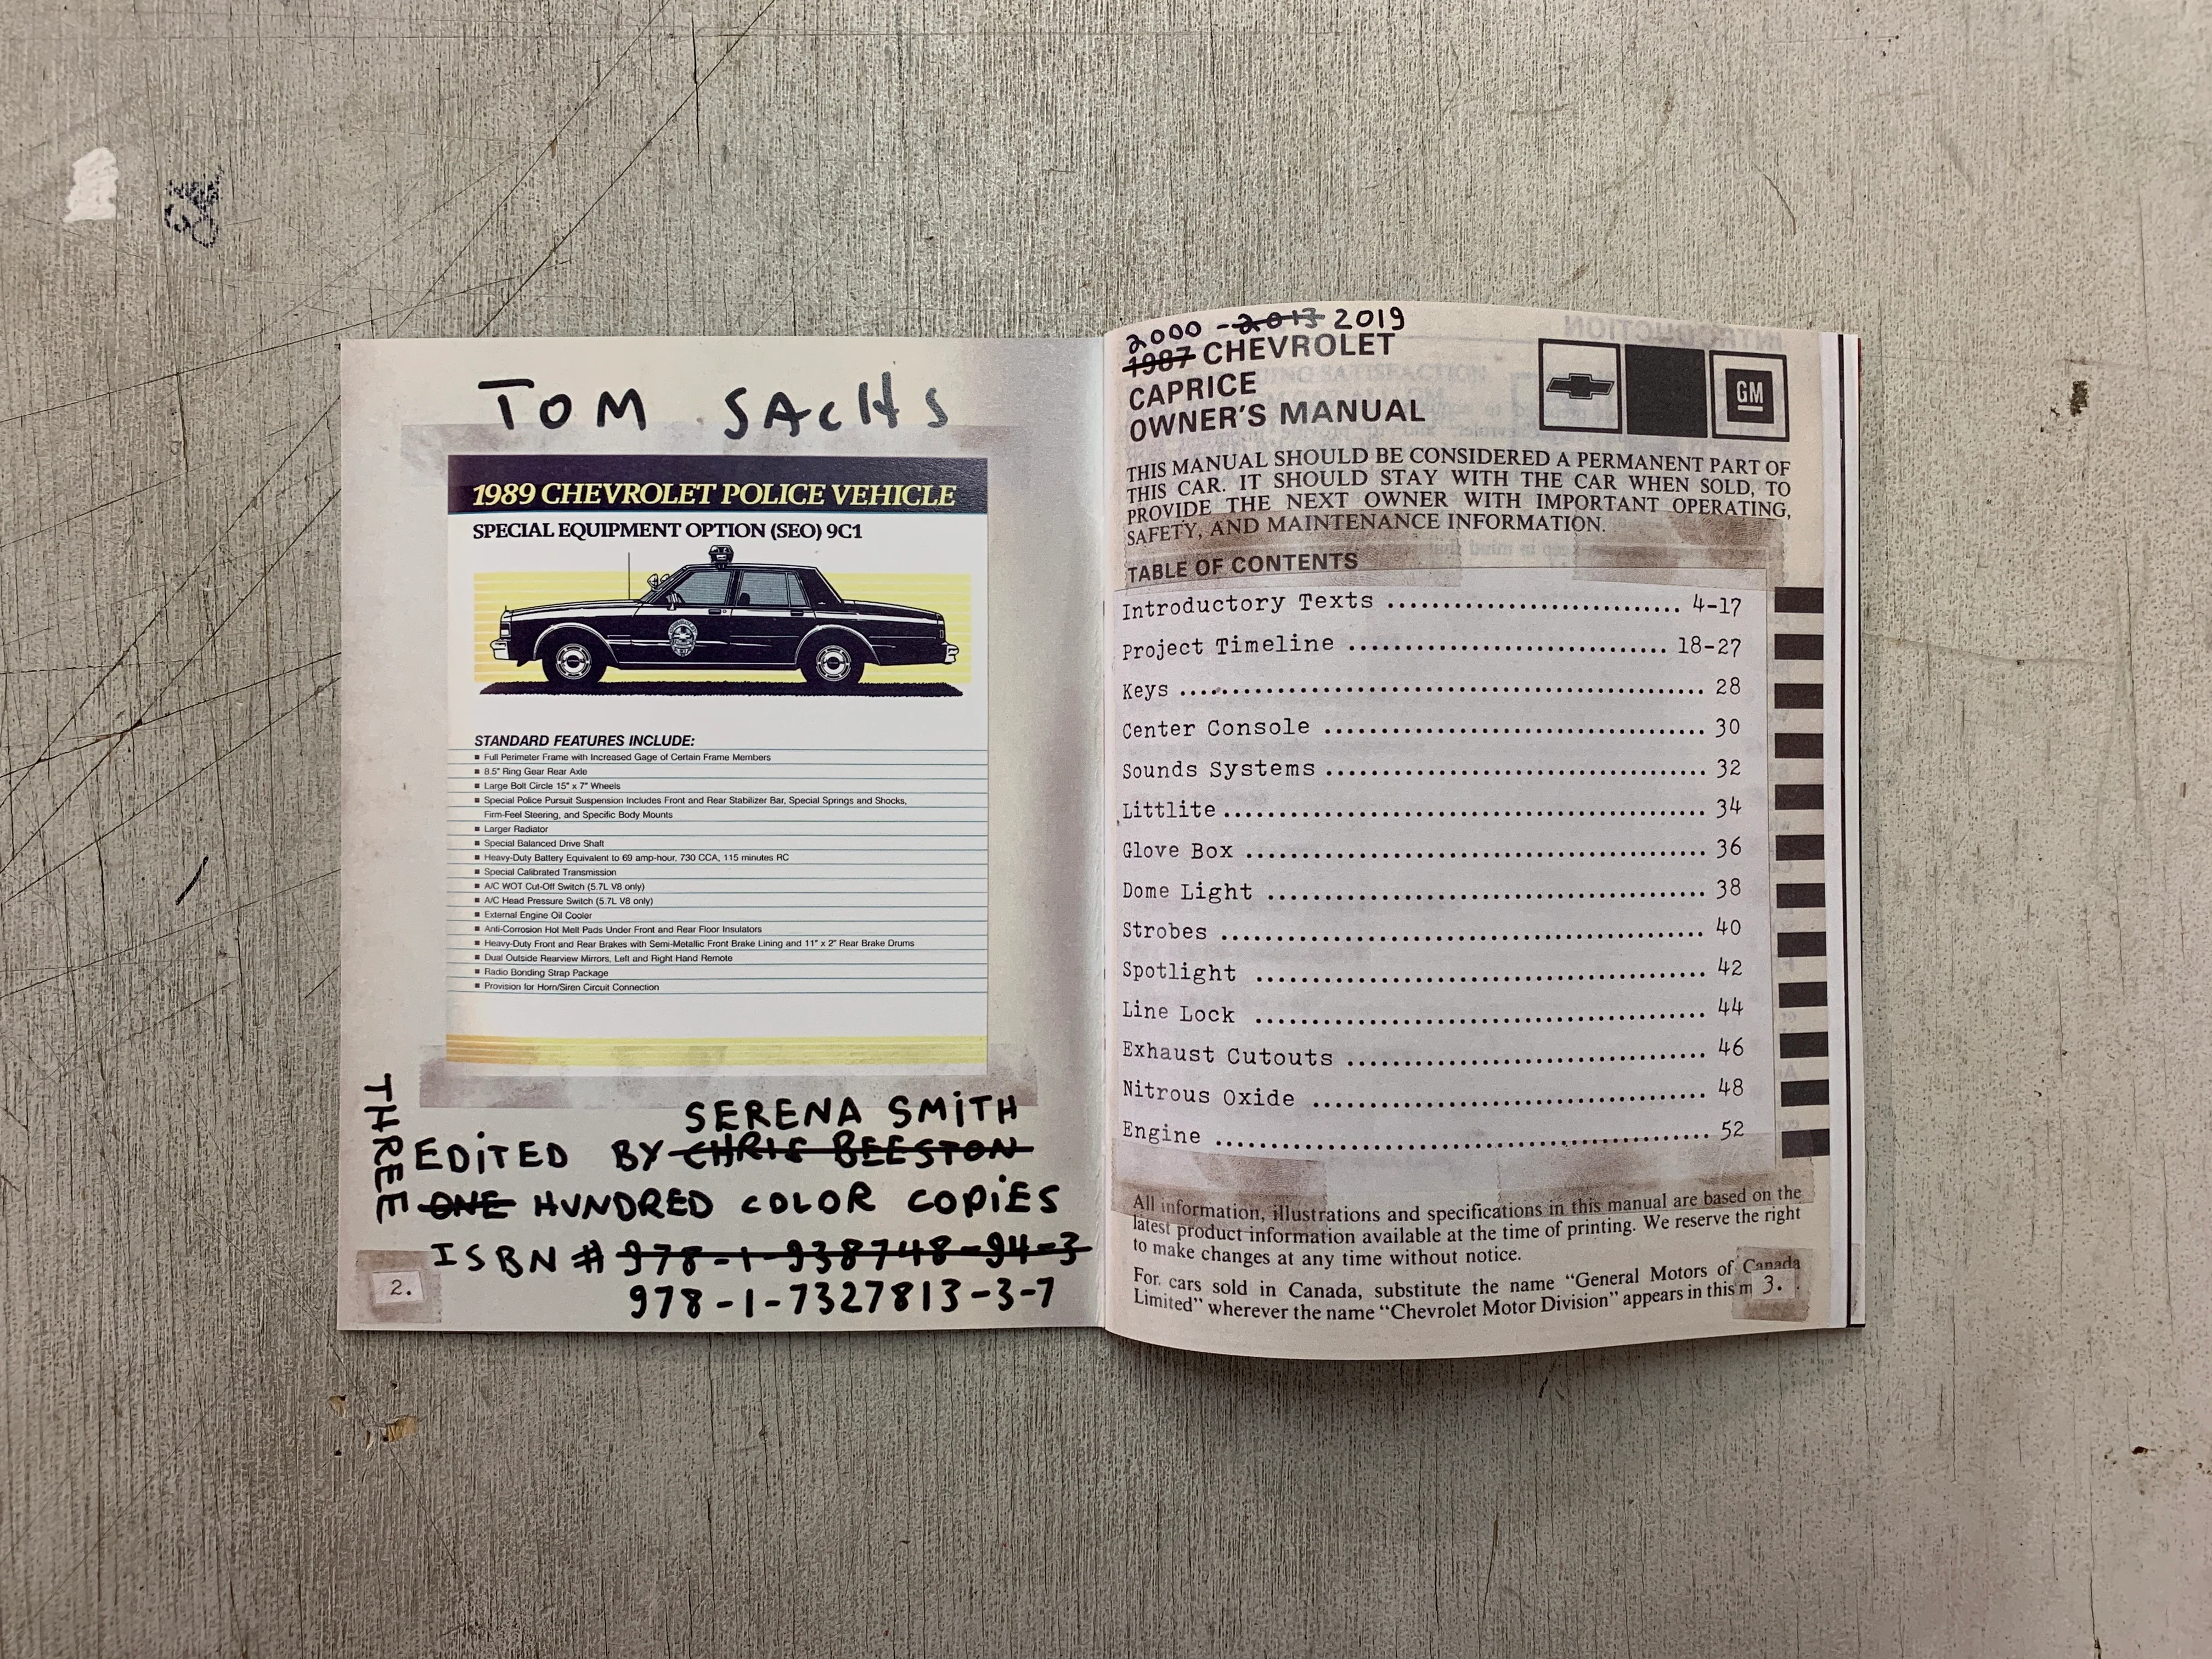 TOM SACHS
1989 CHEVROLET POLICE VEHICLE
SPECIAL EQUIPMENT OPTION (SEO) 9C1
STANDARD FEATURES INCLUDE:
■ Full Perimeter Frame with Increased Gage of Certain Frame Members
■ 8.5" Ring Gear Rear Axle
■ Large Bolt Circle 15" x 7" Wheels
■ Special Police Pursuit Suspension Includes Front and Rear Stabilizer Bar, Special Springs and Shocks,
Firm-Feel Steering, and Specific Body Mounts
■ Larger Radiator
■ Special Balanced Drive Shaft
■ Heavy-Duty Battery Equivalent to 69 amp-hour, 730 CCA, 115 minutes RC
■ Special Calibrated Transmission
■ A/C WOT Cut-Off Switch (5.7L V8 only)
■ A/C Head Pressure Switch (5.7L V8 only)
■ External Engine Oil Cooler
■ Anti-Corrosion Hot Melt Pads Under Front and Rear Floor Insulators
■ Heavy-Duty Front and Rear Brakes with Semi-Metallic Front Brake Lining and 11" x 2" Rear Brake Drums
■ Dual Outside Rearview Mirrors, Left and Right Hand Remote
■ Radio Bonding Strap Package
■ Provision for Horn/Siren Circuit Connection
SERENA SMITH
EDITED BY CHRIS BEESTON
THREE
ONE HUNDRED COLOR COPIES
ISBN # 978-1-938748-94-3
978-1-7327813-3-7
2.
2000 - 2013 2019
1987 CHEVROLET
CAPRICE
OWNER'S MANUAL
GM
THIS MANUAL SHOULD BE CONSIDERED A PERMANENT PART OF
THIS CAR. IT SHOULD STAY WITH THE CAR WHEN SOLD, TO
PROVIDE THE NEXT OWNER WITH IMPORTANT OPERATING,
SAFETY, AND MAINTENANCE INFORMATION.
TABLE OF CONTENTS
Introductory Texts ........................... 4-17
Project Timeline ............................ 18-27
Keys .............................................. 28
Center Console .................................... 30
Sounds Systems .................................... 32
Littlite .......................................... 34
Glove Box ......................................... 36
Dome Light ........................................ 38
Strobes ........................................... 40
Spotlight ......................................... 42
Line Lock ......................................... 44
Exhaust Cutouts ................................... 46
Nitrous Oxide ..................................... 48
Engine ............................................ 52
All information, illustrations and specifications in this manual are based on the
latest product information available at the time of printing. We reserve the right
to make changes at any time without notice.
For cars sold in Canada, substitute the name "General Motors of Canada
Limited" wherever the name "Chevrolet Motor Division" appears in this m
3.